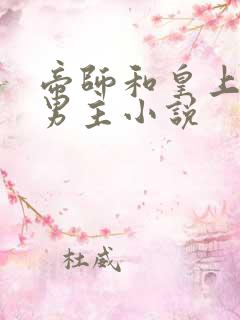 帝師和皇上
男主小說
杜威